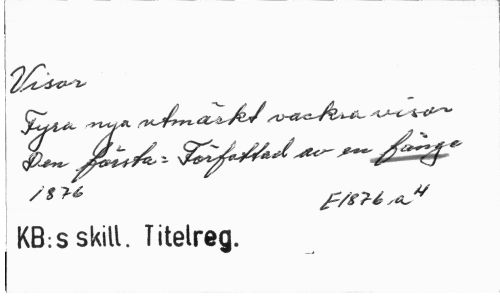 Visor
Fyra nya utmärkt vackra visor
Den första: Författad av en fånge
1876
E1876.a4
KB:s skill. Titelreg.